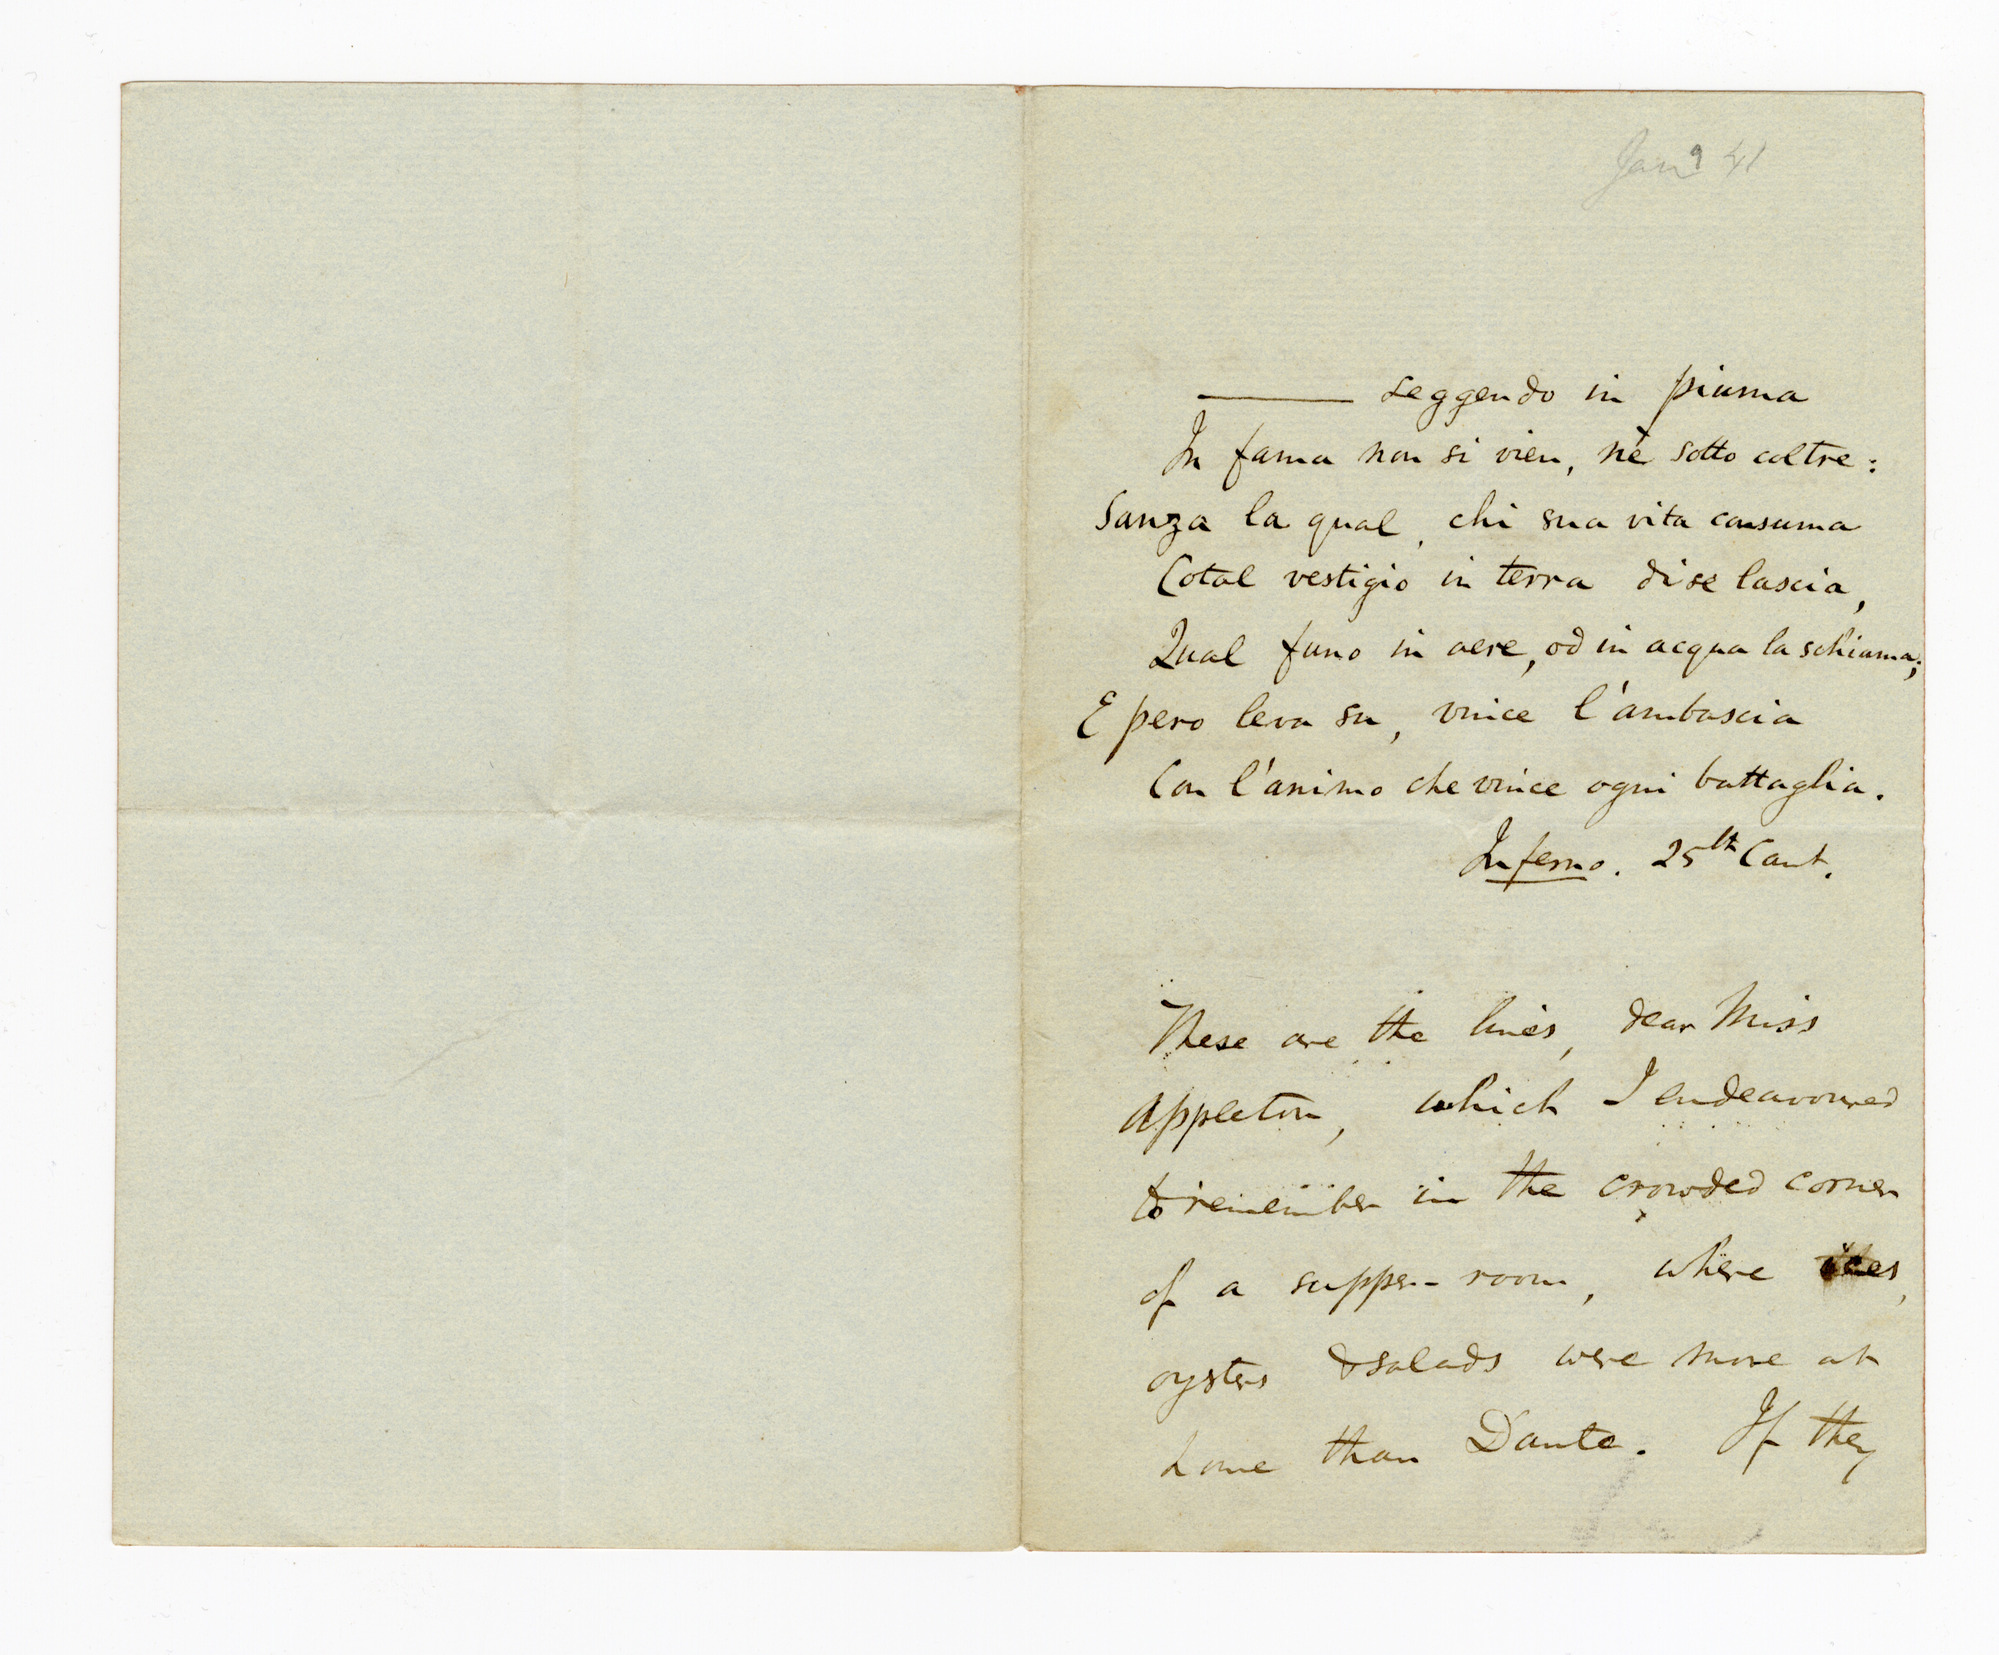 Jan 9 41
——— Leggendo in piuma
In fama non si vien, nè sotto coltre:
Sanza la qual, chi sua vita consuma
Cotal vestigio in terra di se lascia,
Qual fumo in aere, od in acqua la schiuma;
E pero leva su, vince l'ambascia
Con l'animo che vince ogni battaglia.
Inferno. 25th Cant.
These are the lines, dear Miss
Appleton, which I endeavoured
to remember in the crowded corner
of a supper-room, where ices,
oysters & salads were more at
home than Dante. If they